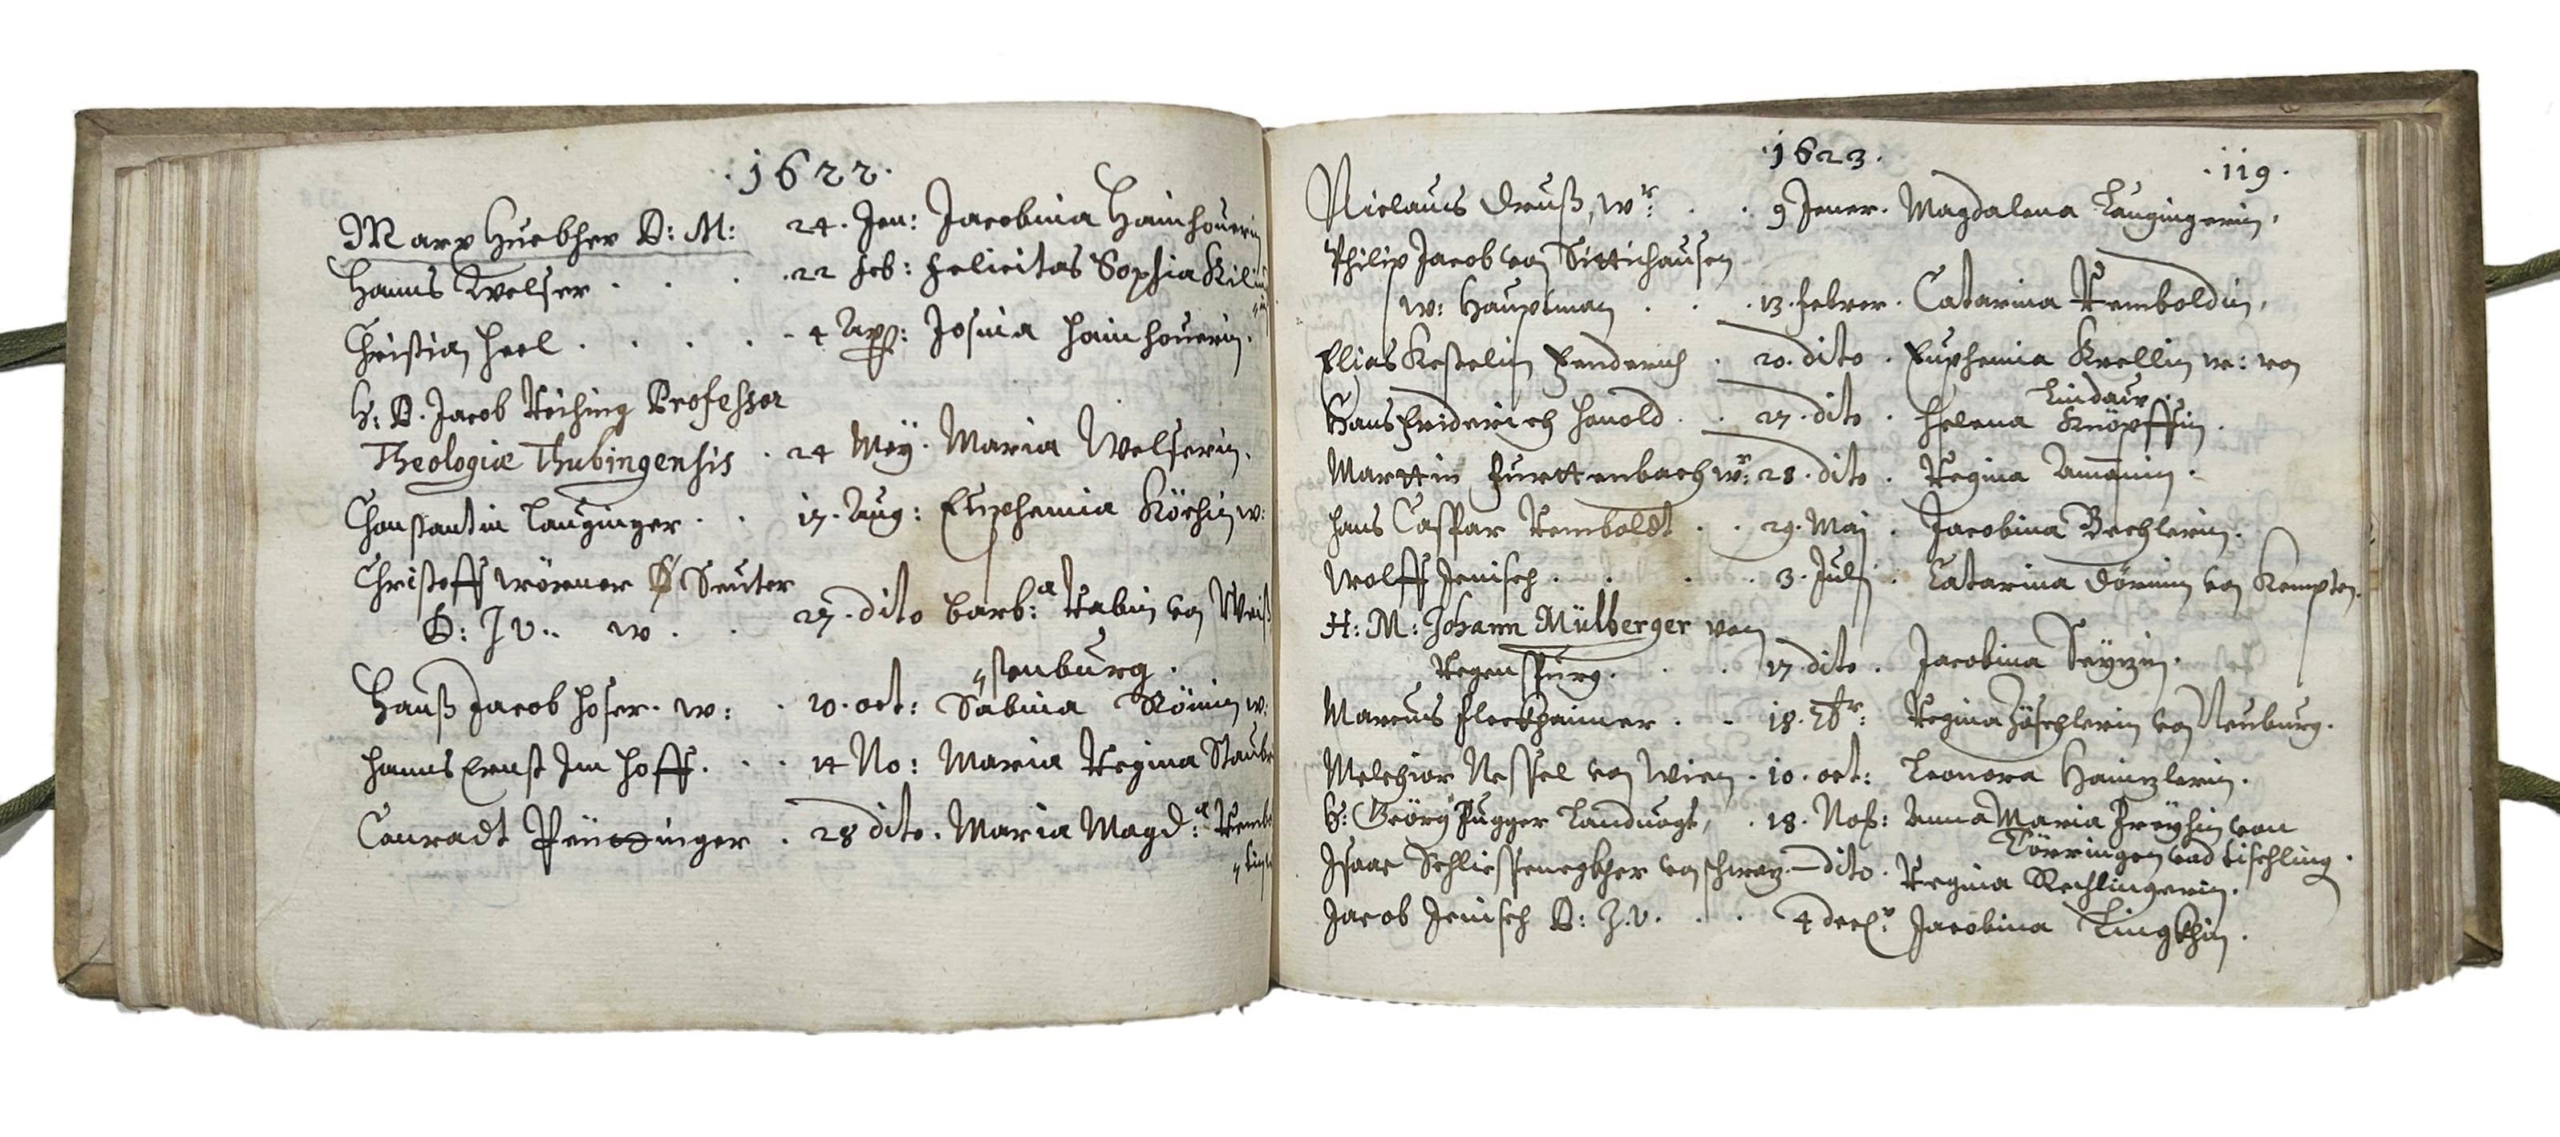 .1622.
Marx Huebher D: M: 24. Jen: Jacobina Hainhouerin
Hanns Welser . . . .22 feb: felicitas Sophia Kili
Christian heel . . . . 4 Apr: Josina hainhouerin.
H: D. Jacob Reihing Professor
Theologiæ Thubingensis . 24 Meÿ. Maria Welserin.
Constantin Lauginger . . 17. Aug: Euphemia Köchin w:
Christoff Wörner Seuter
D: J V.. w . . 27. dito barb:a Rabin von Weiß
〃stenburg .
Hanß Jacob hoser. w: . 20. oct: Sabina Römin w:
hanns Ernst Im hoff. . . 14 No: Maria Regina Staube
Conradt Peüttinger . 28 dito. Maria Magd:a Rembo
.1623.
.119.
Niclaus Druß, wr: . . 9 Jener. Magdalena Laugingerin,
Philip Jacob von Sittichausen
w: Hauptman . . . 13. febrer. Catarina Remboldin,
Elias Kestelin Fenderich . 20. dito . Euphemia Krellin w: von
Lindaw.
Hans Friderich hanold . . 27. dito . helena Knöpffin .
Marttin Furttenbach wr: 28. dito . Regina Amanin .
hans Caspar Remboldt . . 29. Maj . Jacobina Bechlerin .
Wolff Jenisch . . . . 3. Julj . Catarina Dörnin von Kempten.
H: M: Johann Mülberger von
Regenspurg. . . 17 dito . Jacobina Seÿzin .
Marcus fleckhaimer . . 18. 7br: Regina Zöschlerin von Neuburg.
Melchior Nessel von Wien . 10. oct: Leonora Hainzlerin .
H: Geörg Fugger Landuogt, . 18. Nof: Anna Maria Freÿhin von
Törringen vnd tischling .
Isaac Schliesseneckher von schwaz. — dito. Regina Rechlingerin.
Jacob Jenisch D: J.V. . . 4 decr: Jacobina Lingkhin .